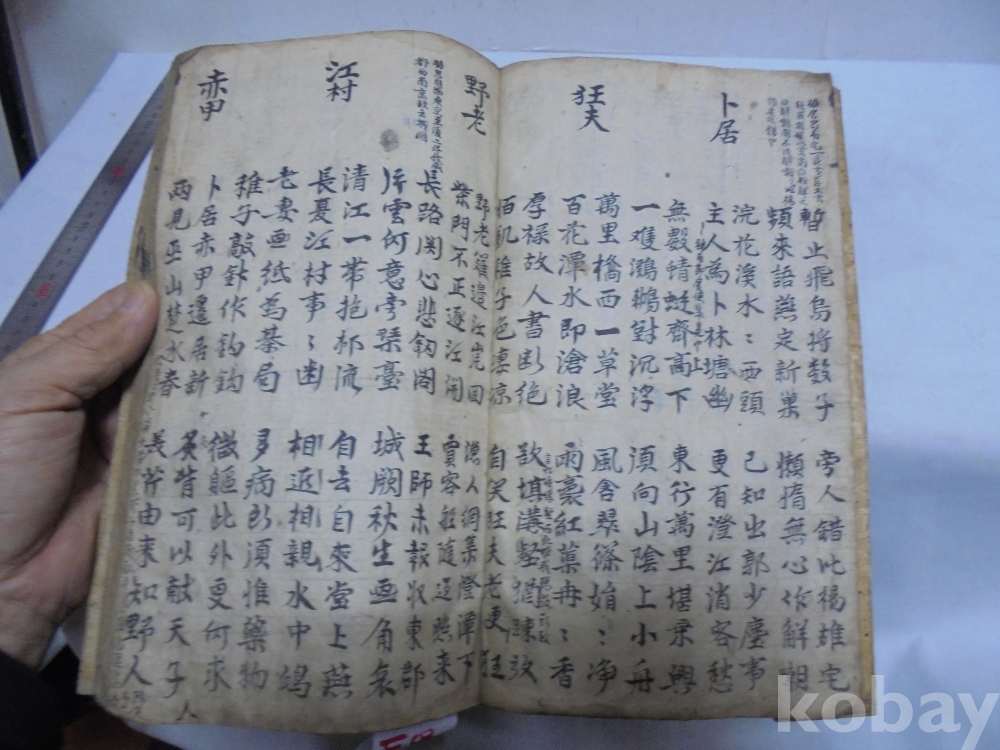 暫止飛烏將數子 旁人錯比楊雄宅
頻來語燕定新巢 懶惰無心作解嘲
卜居
浣花溪水〻西頭 已知出郭少塵事
主人為卜林塘幽 更有澄江消客愁
無數蜻蜓齊高下 東行萬里堪乘興
一雙鸂鶒對沉浮 須向山陰上小舟
狂夫
萬里橋西一草堂 風含翠篠娟〻淨
百花潭水即滄浪 雨裛紅蕖冉〻香
厚祿故人書断絶 欲填溝壑猶踈放
恒飢稚子色凄凉 自笑狂夫老更狂
野老
野老籬邊江岸回 漁人網集澄潭下
柴門不正逐江開 賈客船隨返照來
長路関心悲釰閣 王師未報收東郡
片雲何意旁琴臺 城闕秋生画角哀
江村
清江一帶抱邨流 自去自來堂上燕
長夏江村事〻幽 相近相親水中鴎
老妻画紙為棊局 多病所須惟藥物
稚子敲針作釣鈎 微軀此外更何求
赤甲
卜居赤甲遷居新 炙背可以献天子
兩見巫山楚水春 美芹由来知野人
kobay